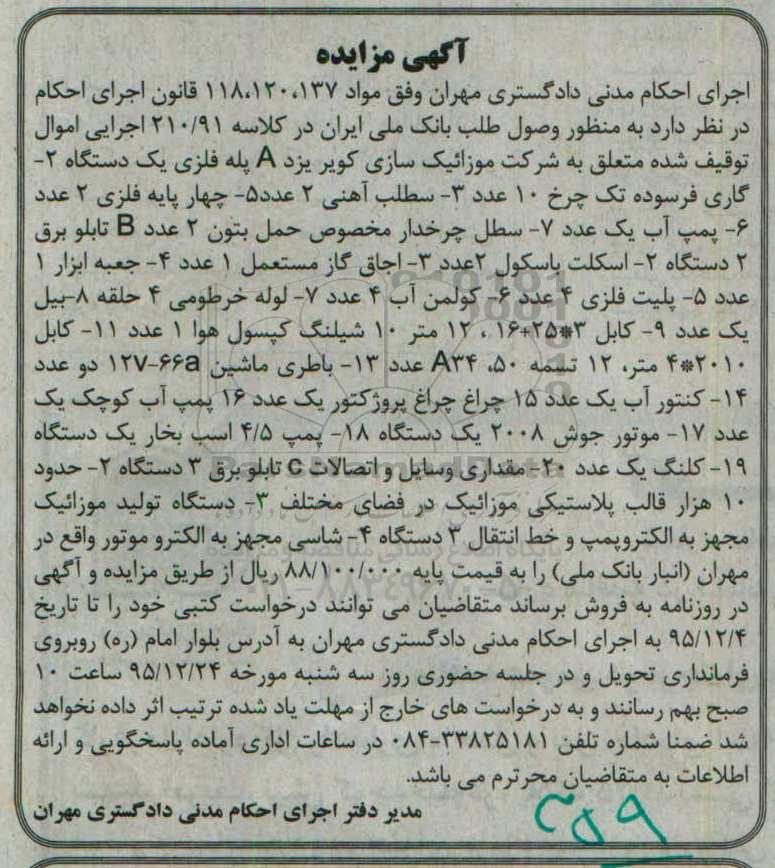 آگهی مزایده
اجرای احکام مدنی دادگستری مهران وفق مواد ۱۱۸،۱۲۰،۱۳۷ قانون اجرای احکام
در نظر دارد به منظور وصول طلب بانک ملی ایران در کلاسه ۲۱۰/۹۱ اجرایی اموال
توقیف شده متعلق به شرکت موزائیک سازی کویر یزد A پله فلزی یک دستگاه ۲-
گاری فرسوده تک چرخ ۱۰ عدد ۳- سطلب آهنی ۲ عدد۵- چهار پایه فلزی ۲ عدد
۶- پمپ آب یک عدد ۷- سطل چرخدار مخصوص حمل بتون ۲ عدد B تابلو برق
۲ دستگاه ۲- اسکلت باسکول ۲عدد ۳- اجاق گاز مستعمل ۱ عدد ۴- جعبه ابزار ۱
عدد ۵- پلیت فلزی ۴ عدد ۶- کولمن آب ۴ عدد ۷- لوله خرطومی ۴ حلقه ۸-بیل
یک عدد ۹- کابل ۳*۲۵+۱۶ ، ۱۲ متر ۱۰ شیلنگ کپسول هوا ۱ عدد ۱۱- کابل
۴*۲۰۱۰ متر، ۱۲ تسمه ۵۰، A۳۴ عدد ۱۳- باطری ماشین ۱۲v-۶۶a دو عدد
۱۴- کنتور آب یک عدد ۱۵ چراغ چراغ پروژکتور یک عدد ۱۶ پمپ آب کوچک یک
عدد ۱۷- موتور جوش ۲۰۰۸ یک دستگاه ۱۸- پمپ ۴/۵ اسب بخار یک دستگاه
۱۹- کلنگ یک عدد ۲۰- مقداری وسایل و اتصالات C تابلو برق ۳ دستگاه ۲- حدود
۱۰ هزار قالب پلاستیکی موزائیک در فضای مختلف ۳- دستگاه تولید موزائیک
مجهز به الکتروپمپ و خط انتقال ۳ دستگاه ۴- شاسی مجهز به الکترو موتور واقع در
مهران (انبار بانک ملی) را به قیمت پایه ۸۸/۱۰۰/۰۰۰ ریال از طریق مزایده و آگهی
در روزنامه به فروش برساند متقاضیان می توانند درخواست کتبی خود را تا تاریخ
۹۵/۱۲/۴ به اجرای احکام مدنی دادگستری مهران به آدرس بلوار امام (ره) روبروی
فرمانداری تحویل و در جلسه حضوری روز سه شنبه مورخه ۹۵/۱۲/۲۴ ساعت ۱۰
صبح بهم رسانند و به درخواست های خارج از مهلت یاد شده ترتیب اثر داده نخواهد
شد ضمنا شماره تلفن ۳۳۸۲۵۱۸۱-۰۸۴ در ساعات اداری آماده پاسخگویی و ارائه
اطلاعات به متقاضیان محرترم می باشد.
مدیر دفتر اجرای احکام مدنی دادگستری مهران